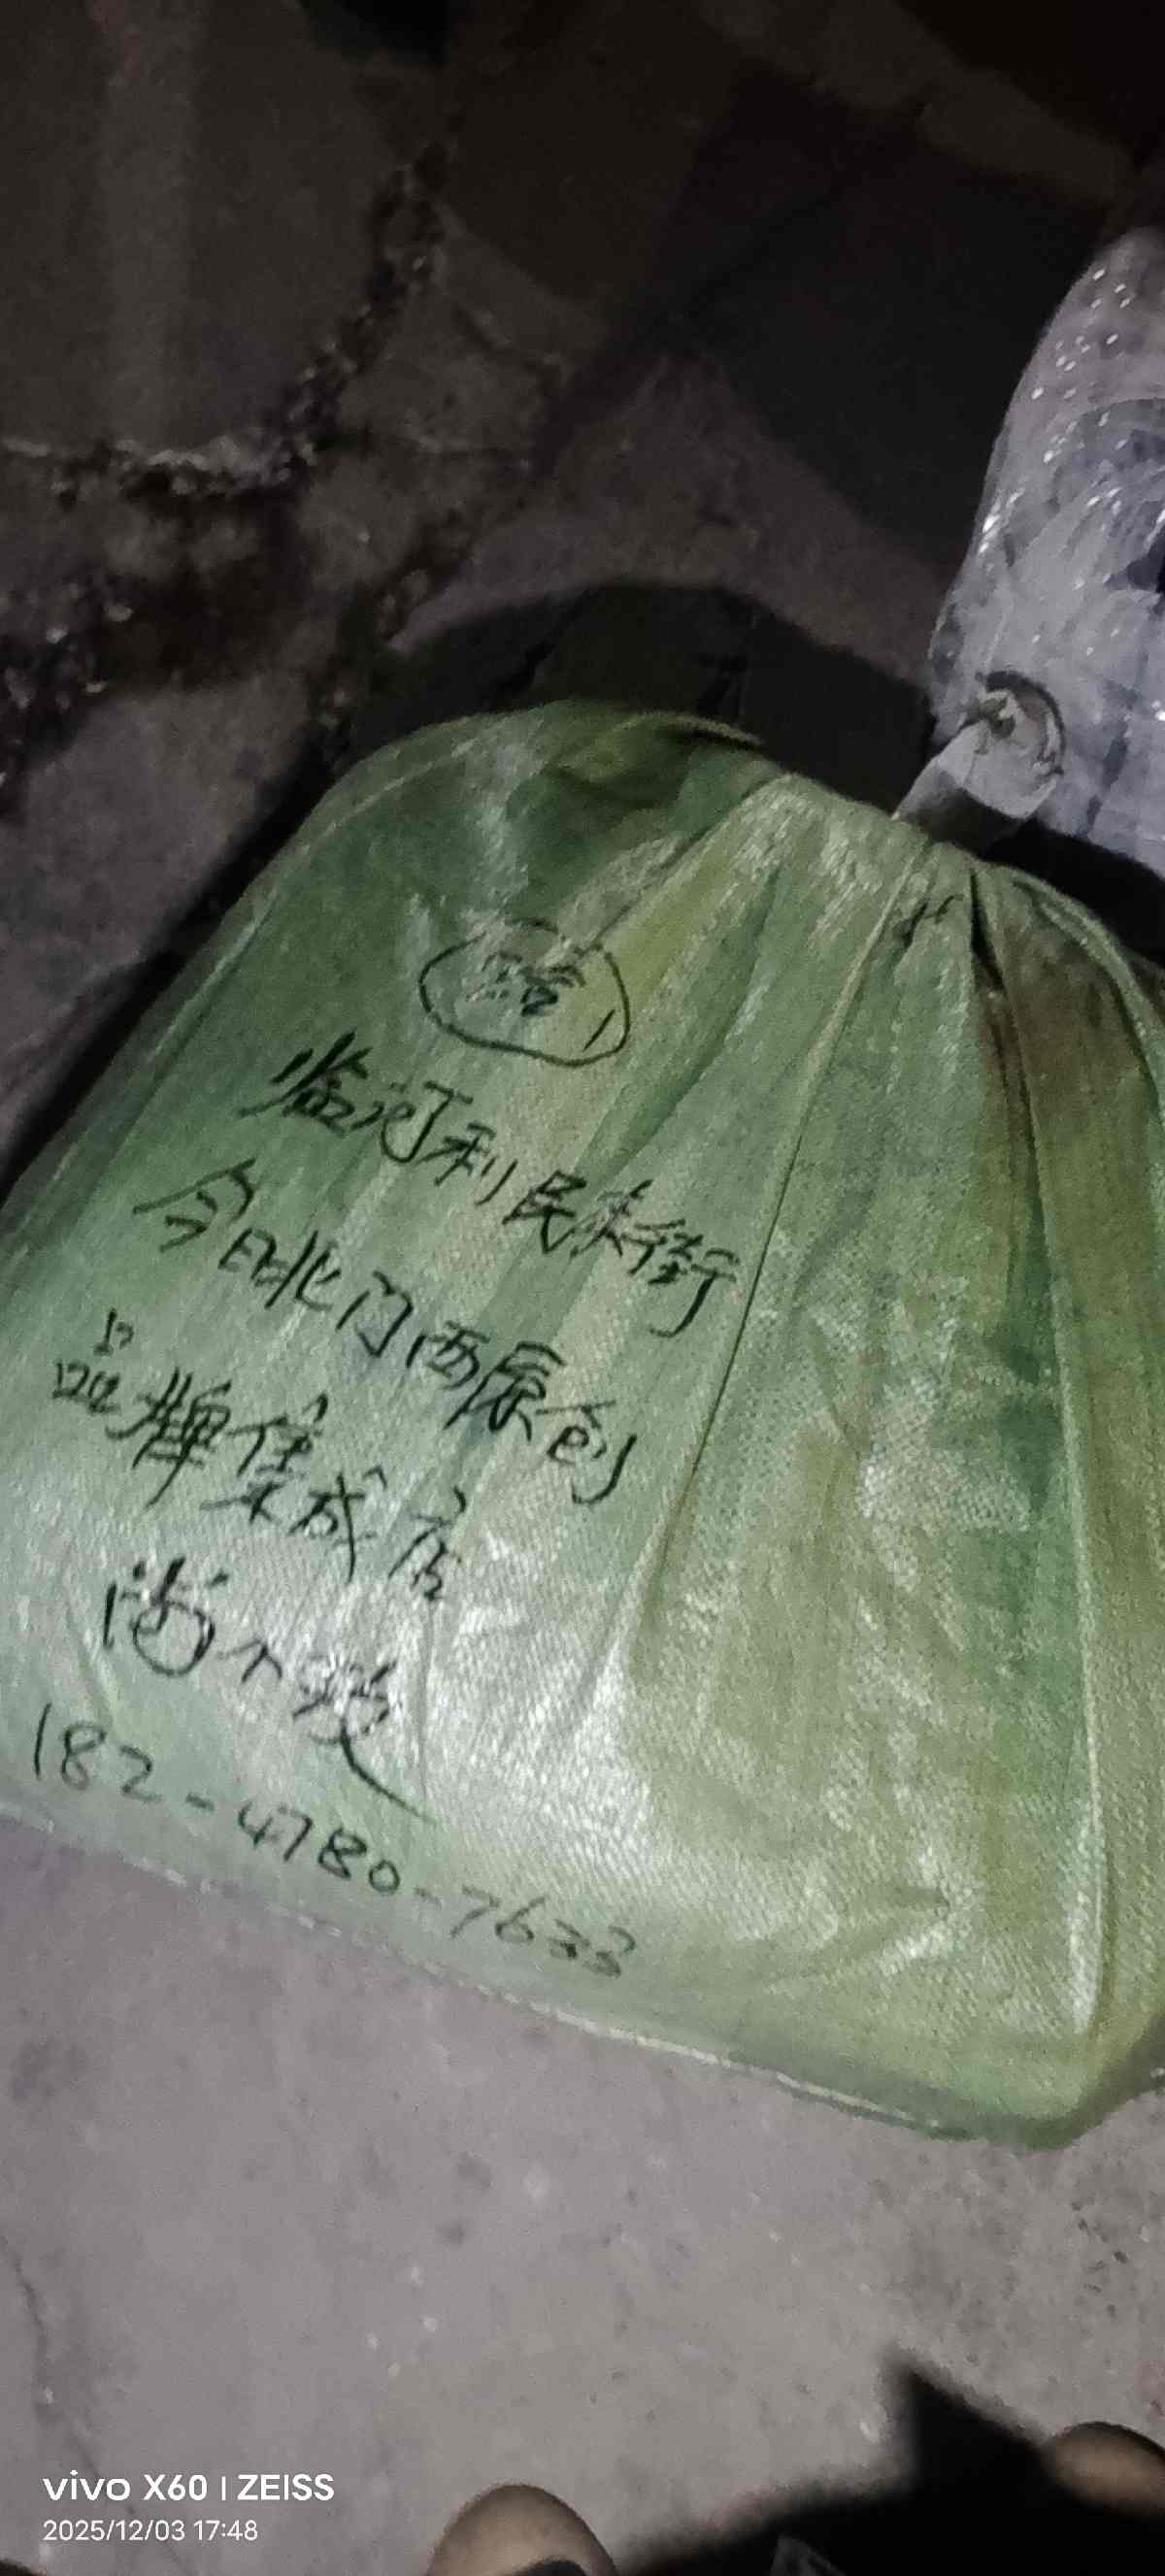 临河利民东街
今日北门西原创
品牌集成店
尚小
182-4780-7633
vivo X60 | ZEISS
2025/12/03 17:48